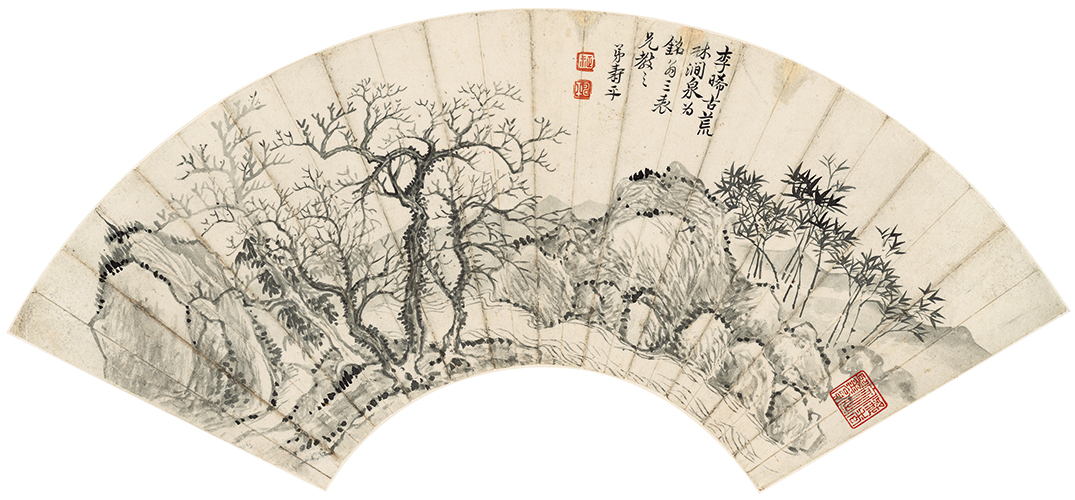 李晞古荒
林澗泉为
銘翁三表
兄教之
弟寿平